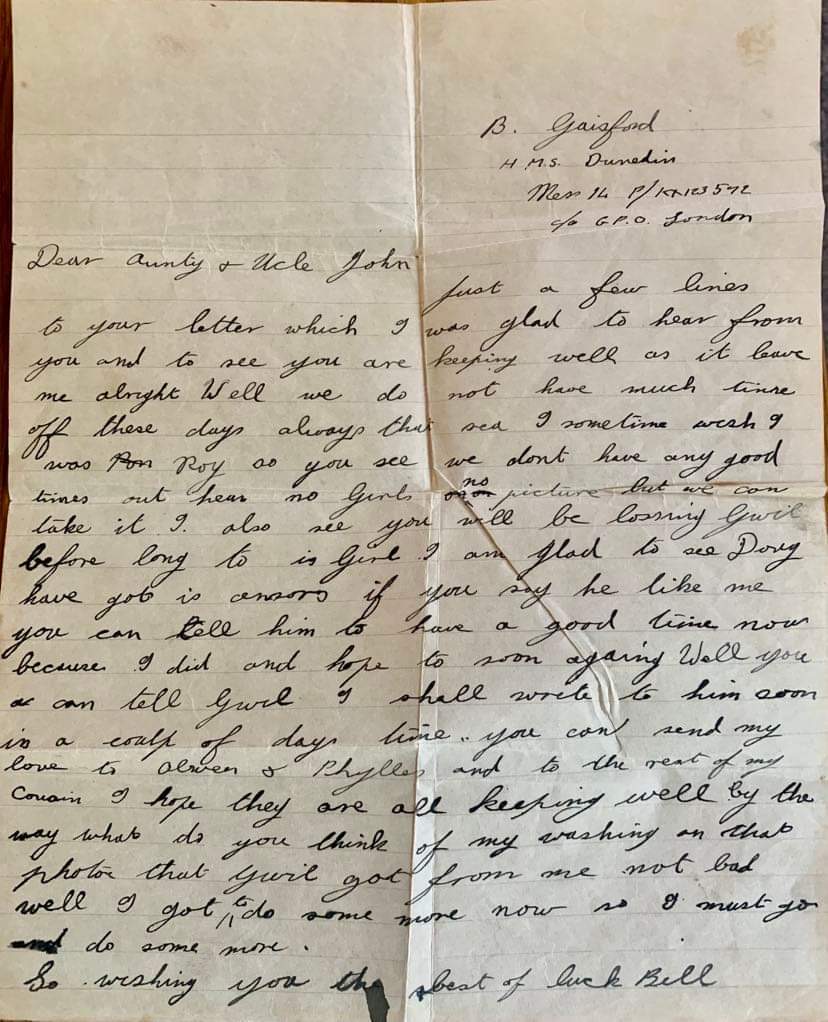 B. Gaisford
H.M.S. Dunedin
Mess 14 P/KX123592
c/o G.P.O. London
Dear Aunty & Ucle John
Just a few lines
to your letter which I was glad to hear from
you and to see you are keeping well as it leave
me alright Well we do not have much time
off these days always that sea I sometime wish I
was Roy as you see we dont have any good
times out hear no Girls no picture but we can
take it I. also see you will be lossing Gwil
before long to is Girl I am glad to see Doug
have got is if you say he like me
you can tell him to have a good time now
because I did and hope to soon againg Well you
can tell Gwil I shall write to him soon
in a coulp of days time.. you can send my
love to Olwen & Phylles and to the rest of my
Cousin I hope they are all keeping well by the
way what do you think of my washing on that
photoe that Gwil got from me not bad
well I got to do some more now so I must go
and do some more.
So wishing you the best of luck Bill